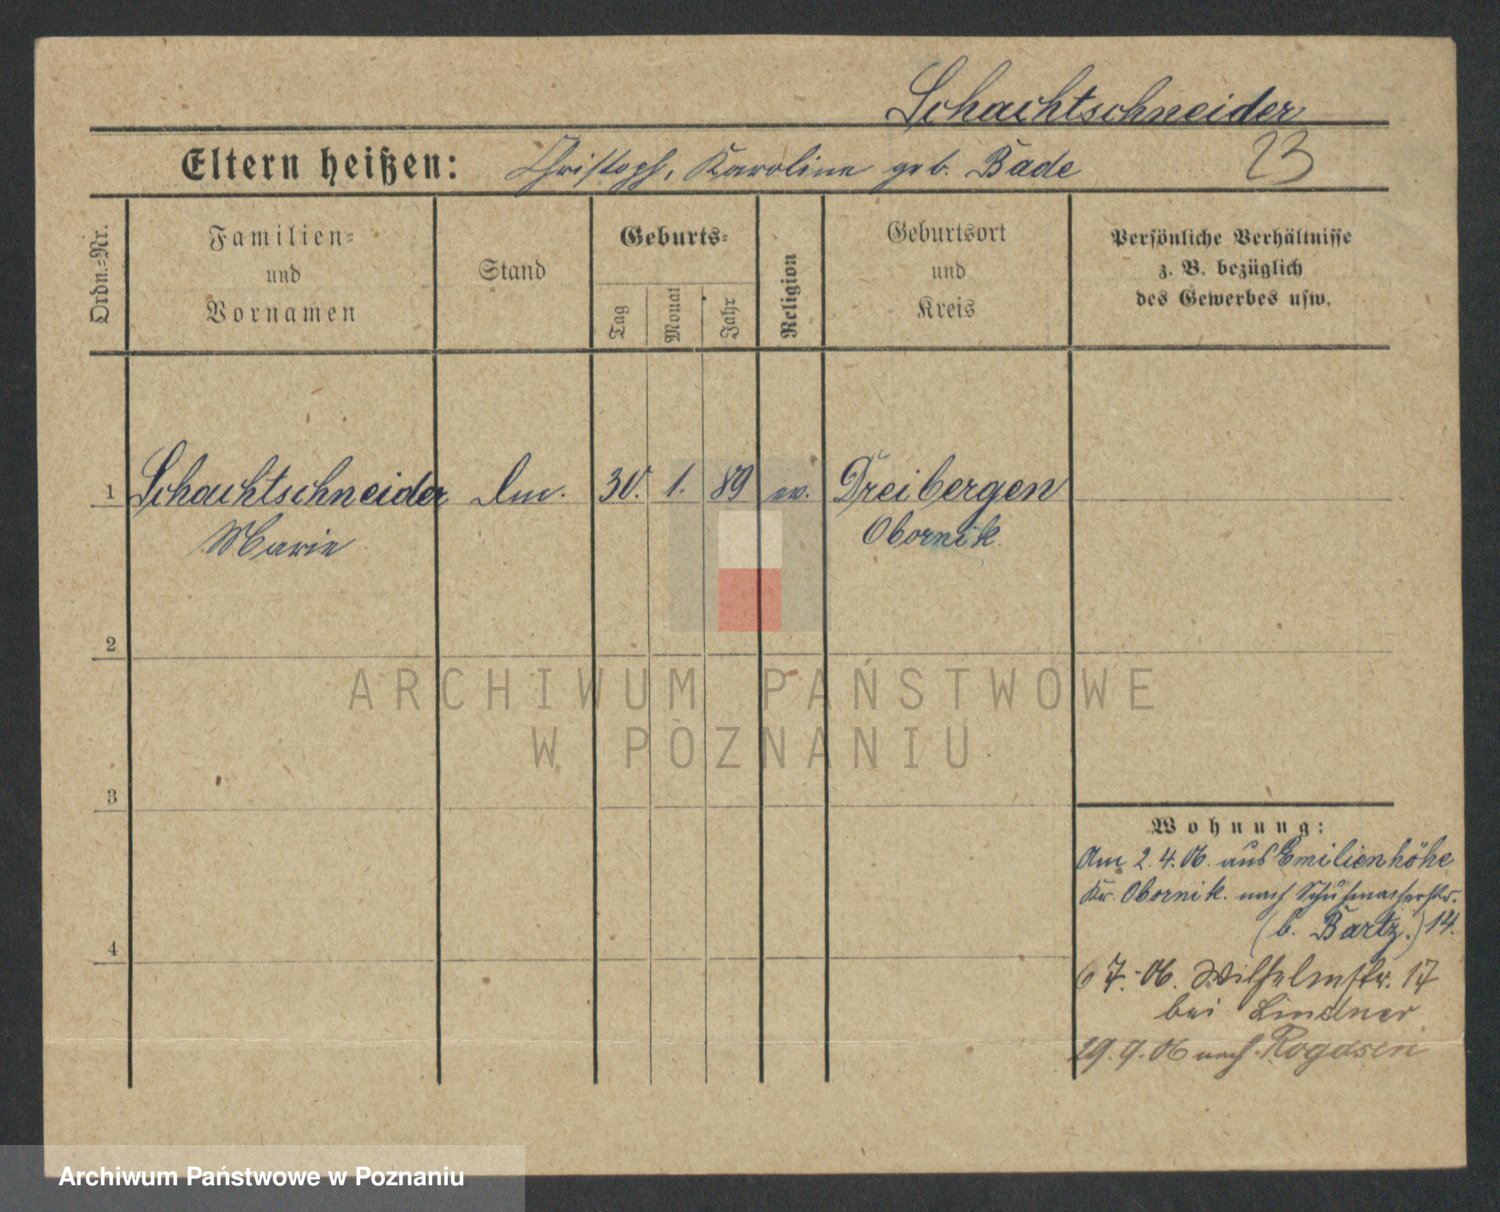 Schachtschneider
Eltern heißen: Christoph, Karoline geb. Bade 23
Ordn.=Nr.
Familien=
und
Vornamen
Stand
Geburts=
Tag
Monat
Jahr
Religion
Geburtsort
und
Kreis
Persönliche Verhältnisse
z. B. bezüglich
des Gewerbes usw.
1 Schachtschneider 30. 1. 89 ev. Dreibergen
Marie Obornik.
2
3
4
Wohnung:
Am 2.4.06. aus Emilienhöhe
Kr. Obornik. nach Schuhmacherstr.
(b. Bartz.) 14.
7. 06. Wilhelmstr. 17
bei Lindner
29.9.06 nach Rogasen
ARCHIWUM PAŃSTWOWE
W POZNANIU
Archiwum Państwowe w Poznaniu